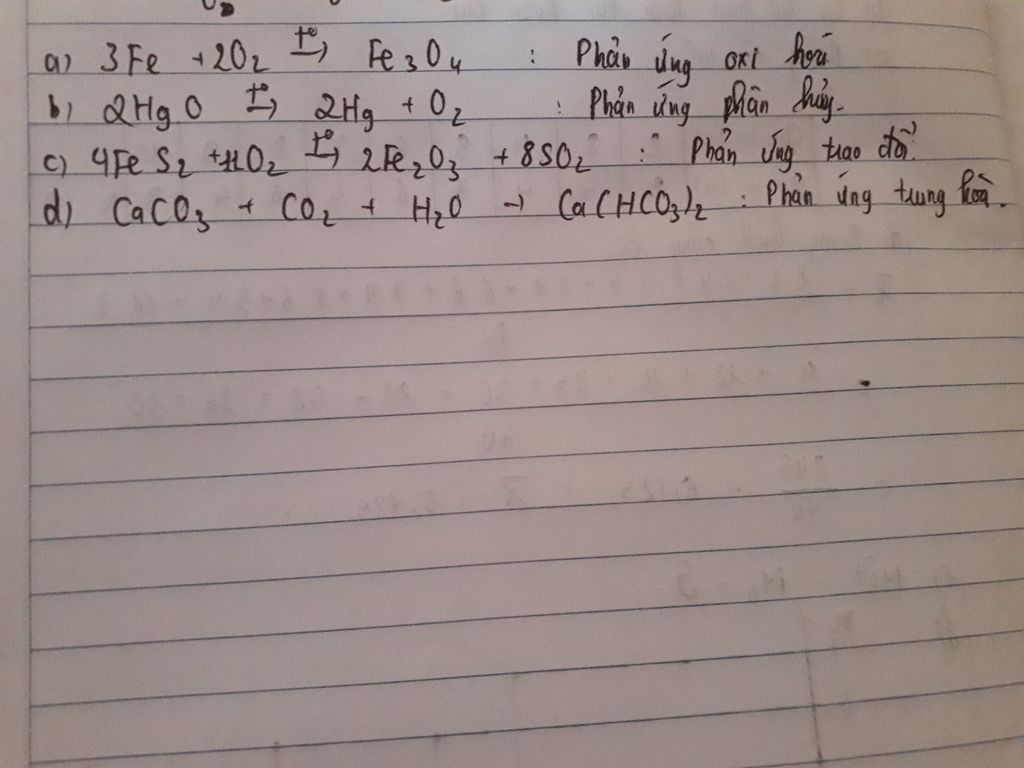 a) 3Fe + 2O₂ →(t°) Fe₃O₄ : Phản ứng oxi hoá
b) 2HgO →(t°) 2Hg + O₂ : Phản ứng phân hủy.
c) 4FeS₂ + 11O₂ →(t°) 2Fe₂O₃ + 8SO₂ : Phản ứng trao đổi
d) CaCO₃ + CO₂ + H₂O → Ca(HCO₃)₂ : Phản ứng trung hoà.